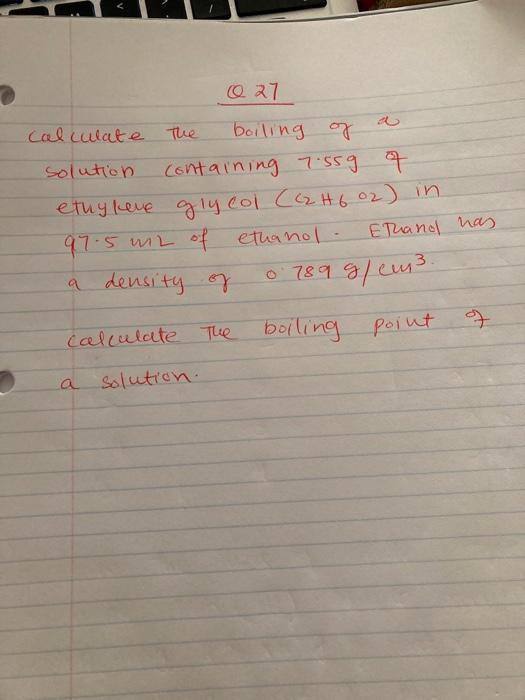 Q 27
Calculate The boiling of a
solution containing 7.55g of
ethylene glycol (C2H6O2) in
97.5 mL of ethanol. Ethanol has
a density of 0.789 g/cm3.
Calculate The boiling point of
a solution.